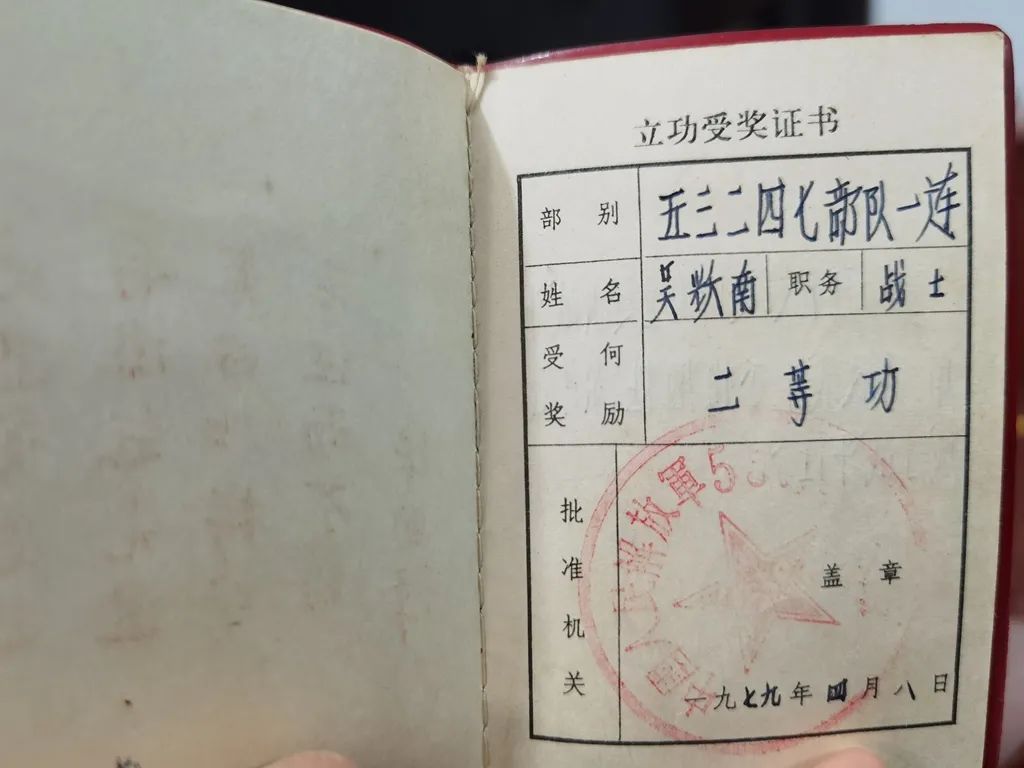 立功受奖证书
部别 五三二四七部队一连
姓名 吴牧南 职务 战士
受何奖励 二等功
批准机关
中国人民解放軍5
盖章
一九七九年四月八日